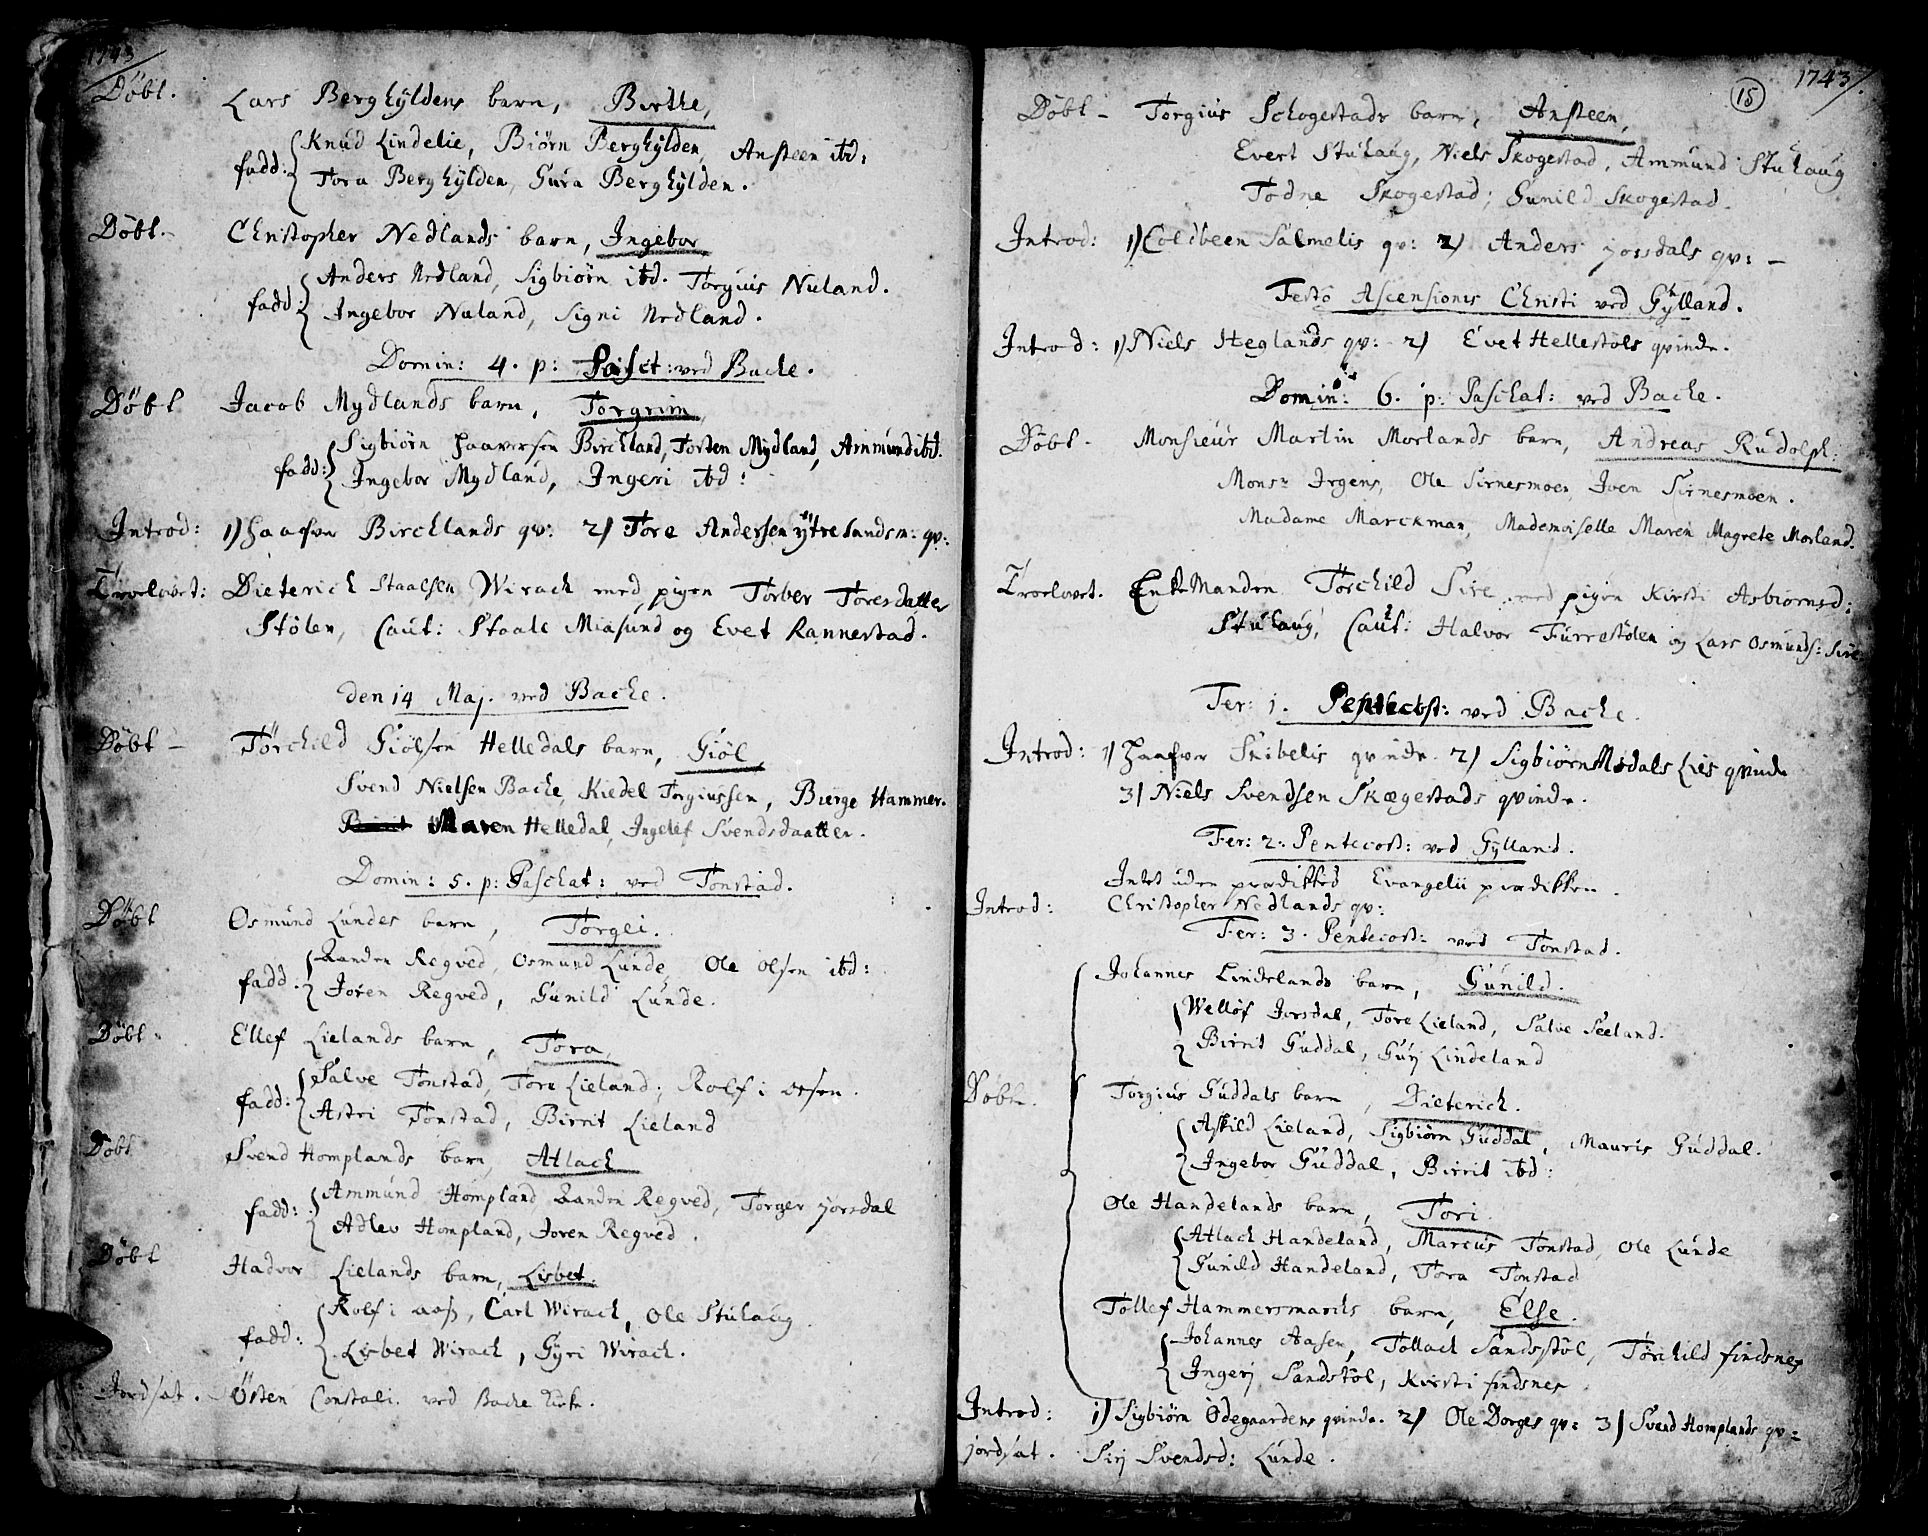 1743
Döbt. Lars Berghÿldens barn, Birthe,
fadd: Knud Lindelie, Biörn Berghÿlden, Ansteen itd:
Tora Berghÿlden, Gura Berghÿlden.
Döbt. Christopher Nedlands barn, Ingebor,
fadd: Anders Nedland, Sigbiörn itd. Torguis Nuland.
Ingebor Nuland, Signi Nedland.
Domin: 4. p: Pasct: ved Bache.
Döbt Jacob Mydlands barn, Torgrim,
fadd: Sigbiörn Haaversen Birchland, Torsten Mydland, Ammund itd.
Ingebor Mydland, Ingeri itd:
Introd: 1) Haafver Birchlands qv: 2) Tore Andersen ÿtre Landsm: qv:
Troelovet: Dieterich Staalsen Wirach med pigen Torber Toresdatter
Stölen, Caut: Staale Miasund og Evet Rannestad.
den 14 Maj. ved Bache.
Döbt - Törchild Giölsen Helledals barn, Giöl,
Svend Nielsen Bache, Kiedel Torgiussen, Bierge Hammer.
Maren Helledal, Ingelef Svendsdaatter.
Domin: 5. p: Paschat: ved Tonstad.
Döbt Osmund Lundes barn, Torgei.
fadd. Randen Regved, Osmund Lunde, Ole Olsen itd:
Joren Regved, Gunild Lunde.
Döbt. Ellef Lielands barn, Tora,
fadd: Salve Tonstad, Tore Lieland; Rolf i Aasen.
Astri Tonstad, Birnt Lieland
Döbt Svend Homplands barn, Atlach
fadd: Ammund Hompland Randen Regved, Torger Jorsdal
Adlev Hompland, Joren Regved.
Döbt Hadvor Lielands barn, Lisbet.
fadd: Rolf i aas, Carl Wirach, Ole Stulaug.
Lisbet Wirach, Gyri Wirach.
Jordsat. Östen Constali ved Bache Kirke.
15
1743.
Döbt - Torgius Schogestads barn, Ansteen,
Evert Stulaug, Niels Skogestad, Ammund Stulaug
Todne Skogestad; Gunild Skogestad.
Introd: 1) Coldbeen Salmelis qv: 2) Anders Jorsdals qv: -
Festo Ascensionis Christi ved Gÿlland.
Introd: 1) Niels Heglands qv: 2) Evet Hellestöls qvinde.
Domin: 6. p: Paschat: ved Bache.
Döbt. Monsieur Martin Morlands barn, Andreas Rudolph:
Monsr Irgens, Ole Sirnesmoen, Iven Sirnesmoen.
Madame Marckman, Mademoiselle Maren Magrete Morland.
Troelovet. EnkeManden Törchild Sire med pigen Kirsti Asbiörnsd:
Stulaug, Caut: Halvor Furrestölen og Lars Osmunds: Sire
Fer: 1. Pentecost: ved Bache.
Introd: 1) Haafver Skibelis qvinde. 2) Sigbiörn Modals Lies qvinde
3) Niels Svendsen Skægestads qvinde.
Fer: 2. Pentecost: ved Gÿlland.
Intet uden prædikket Evangelii prædikken.
Introd: Christopher Nedlands qv:
Fer: 3. Pentecost: ved Tonstad.
Johannes Lindelands barn, Gunild.
Wellöf Jorsdal, Tore Lieland, Salve Seeland.
Birnt Guddal, Gurj Lindeland
Döbt. Torgius Guddals barn, Dieterich.
Askild Lieland, Sigbiörn Guddal, Mauris Guddal.
Ingebor Guddal, Birnt itd:
Ole Handelands barn, Tori.
Atlach Handeland, Marcus Tonstad, Ole Lunde
Gunild Handeland, Tora Tonstad
Tollef Hammersmarchs barn, Else.
Johannes Aasen, Tollach Sandstöl, Törchild Findsnes
Ingerj Sandstöl, Kirsti findsnes
Introd: 1) Sigbiörn Ödegaardens qvinde. 2) Ole Dorges qv: 3) Svend Homplands qv:
jordsat. Sirj Svendsd: Lunde.